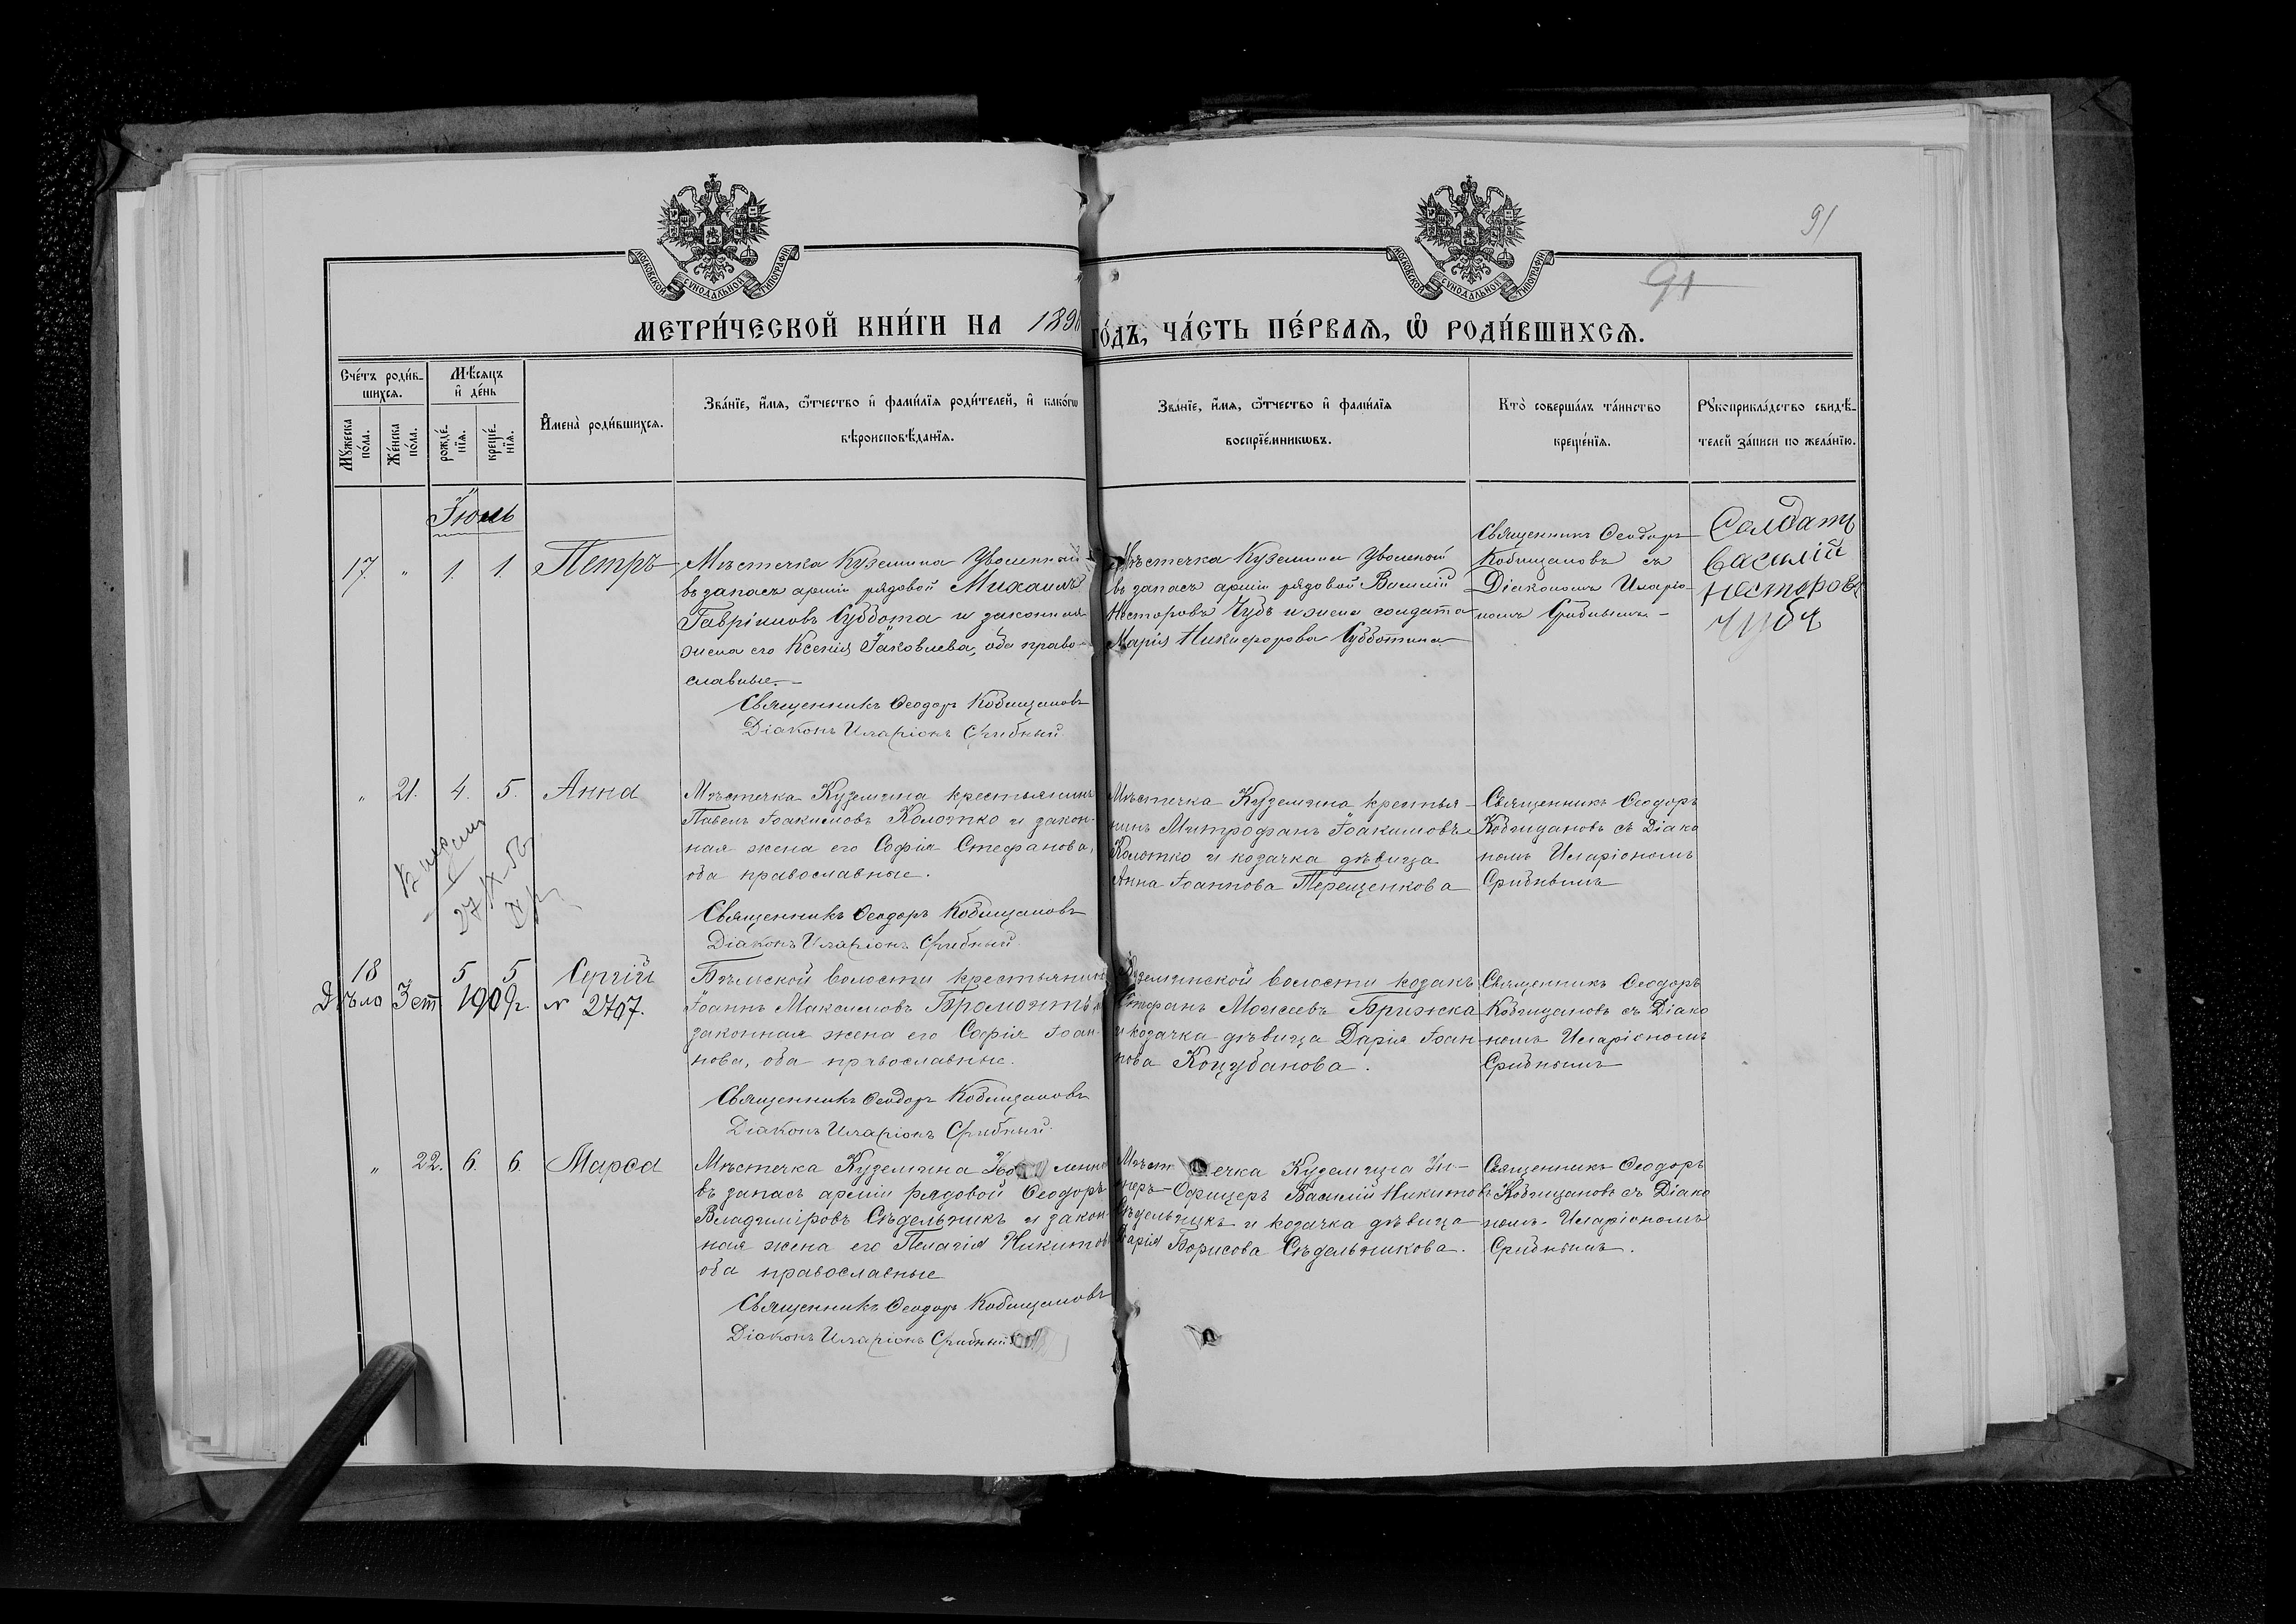 91
91
МОСКОВСКОЙ СѴНОДАЛЬНОЙ ТИПОГРАФІИ
МОСКОВСКОЙ СѴНОДАЛЬНОЙ ТИПОГРАФІИ
МЕТРИ́ЧЕСКОЙ КНИ́ГИ НА 189
ГО́ДЪ, ЧА́СТЬ ПЕ́РВАѦ, Ѿ РОДИ́ВШИХСѦ.
Сче́тъ роди́в-
шихсѧ.
Мꙋ́жеска по́ла.
Же́нска по́ла.
Мѣ́сѧцъ
и҆ де́нь
рожде́-
нїѧ.
креще́-
нїѧ.
И҆мена̀ роди́вшихсѧ.
Зва́нїе, и҆́мѧ, ѻ҆́тчество и҆ фамѝлїѧ роди́телей, и҆ како́гѡ
вѣроисповѣ́данїѧ.
Зва́нїе, и҆́мѧ, ѻ҆́тчество и҆ фамѝлїѧ
воспрїе́мникѡвъ.
Кто̀ соверша́лъ та́инство
креще́нїѧ.
Рꙋкоприкла́дство свидѣ́-
телей за́писи по жела́нїю.
Іюль
17. " 1. 1. Петръ
Мѣстечка Куземина Уволенный
въ запасъ арміи рядовой Михаилъ
Гавріиловъ Суббота и законная
жена его Ксенія Іаковлева, оба право-
славные.-
Священникъ Ѳеодоръ Кобищановъ
Діаконъ Иларіонъ Срибный
Мѣстечка Куземина Уволеный
въ запасъ арміи рядовой Василій
Несторовъ Чубъ и жена солдата
Марія Никифорова Субботина
Священникъ Ѳеодоръ
Кобищановъ съ
Діакономъ Иларіо-
номъ Срибнымъ.-
Солдатъ
Василій
Несторовъ
Чубъ
" 21. 4. 5. Анна
Мѣстечка Куземина крестьянинъ
Павелъ Іоакимовъ Колотко и закон-
ная жена его Софія Стефанова,
оба православные.
Священникъ Ѳеодоръ Кобищановъ
Діаконъ Иларіонъ Срибный
Мѣстечка Куземина крестья-
нинъ Митрофанъ Іоакимовъ
Колотко и козачка дѣвица
Анна Іоаннова Терещенкова
Священникъ Ѳеодоръ
Кобищановъ съ Діако
номъ Иларіономъ
Срибнымъ
18 5 5 Сергій
Дѣло 3 ст 1909г. № 2707.
Бѣльской волости крестьянинъ
Іоаннъ Максимовъ
законная жена его Софія Іоан-
нова, оба православные.
Священникъ Ѳеодоръ Кобищановъ
Діаконъ Иларіонъ Срибный.
Куземинской волости козакъ
Стефанъ Моисеевъ Брижка
и козачка дѣвица Дарія Іоан
нова Коцубанова.
Священникъ Ѳеодоръ
Кобищановъ съ Діако
номъ Иларіономъ
Срибнымъ
" 22. 6. 6. Марѳа
Мѣстечка Куземина
въ запасъ арміи рядовой Ѳеодоръ
Владиміровъ Сѣдельникъ и закон-
ная жена его Пелагія Никитова
оба православные
Священникъ Ѳеодоръ Кобищановъ
Діаконъ Иларіонъ Срибный
Мѣстечка Куземина Ун-
теръ-Офицеръ Василій Никитовъ
Сѣдельникъ и козачка дѣвица
Марія Борисова Сѣдельникова.
Священникъ Ѳеодоръ
Кобищановъ съ Діако
номъ Иларіономъ
Срибнымъ.